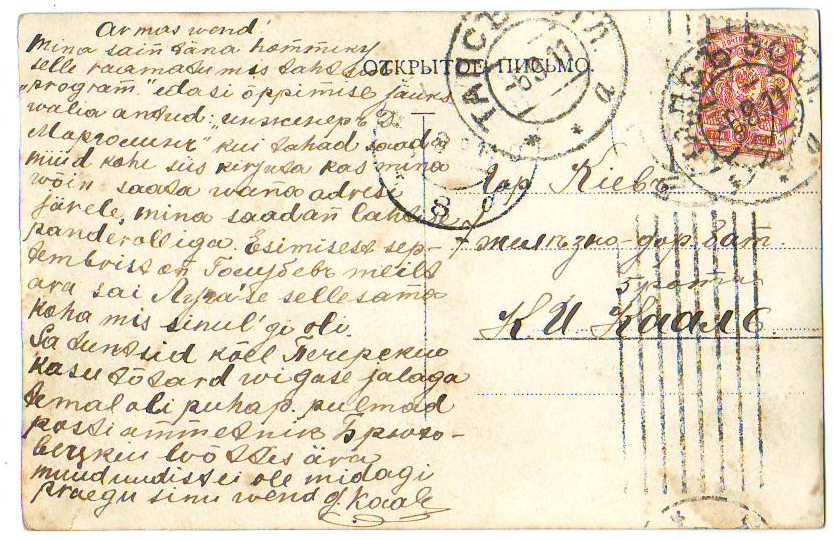 Armas wend!
Mina sain täna kommiku
selle raamatu mis
"program" edasi õppimise jäuks
walia antud: "инженеръ
Марголинъ" kui tahad saada
müüd kohe siis kirjuta kas mina
wõin saata wana adresi
järele, mina saadan lahtise
panderolliga. Esimisest sep-
tembrist on Голубевъ meilt
ära sai Луга'se sellesama
koha mis sinul'gi oli.
Sa tuntsid köll Печерскию
kasu tõtard wigase jalaga
temal oli puhap. pulmad
posti ammetnik Брюхо-
wõttis ära
muud uudist ei ole midagi
praegu sinu wend J. Kaal
ОТКРЫТОЕ ПИСЬМО.
Гор Кіевъ
7 желѣзно-дор. бат.
5 рота
К. И Каалъ.